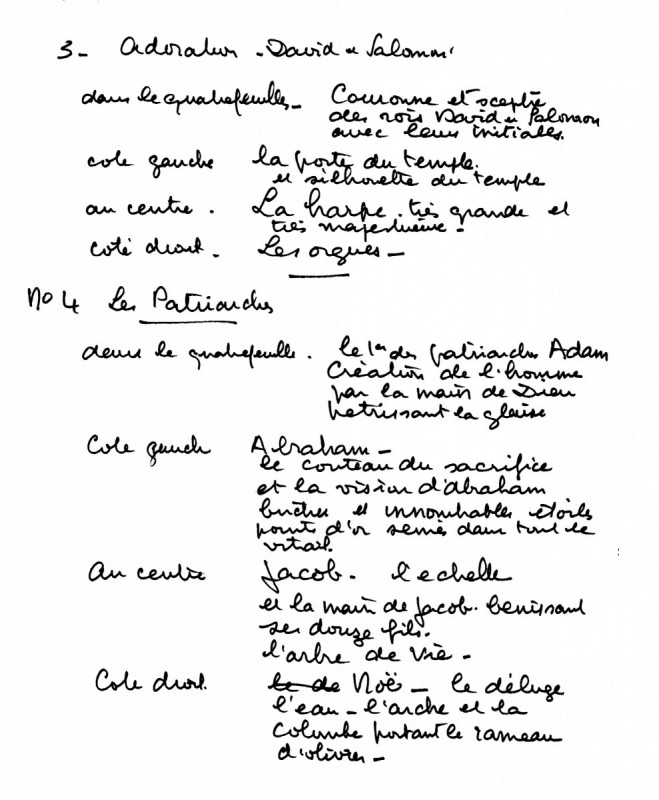 3- Adoration - David et Salomon
dans le quatrefeuilles - Couronne et sceptre
des rois David et Salomon
avec leurs initiales.
coté gauche la porte du temple.
et silhouette du temple
au centre. La harpe. très grande et
très majestueuse -
coté droit. Les orgues -
No 4 Les Patriarches
dans le quatrefeuille. le 1er des patriarches Adam
Création de l'homme
par la main de Dieu
petrissant la glaise
Coté gauche Abraham -
le couteau du sacrifice
et la vision d'Abraham
bucher et innombrables étoiles
points d'or semés dans tout le
vitrail.
Au centre Jacob. l'echelle
et la main de Jacob benissant
ses douze fils.
l'arbre de vie -
Coté droit. le de Noë - le déluge
l'eau - l'arche et la
Colombe portant le rameau
d'olivier -